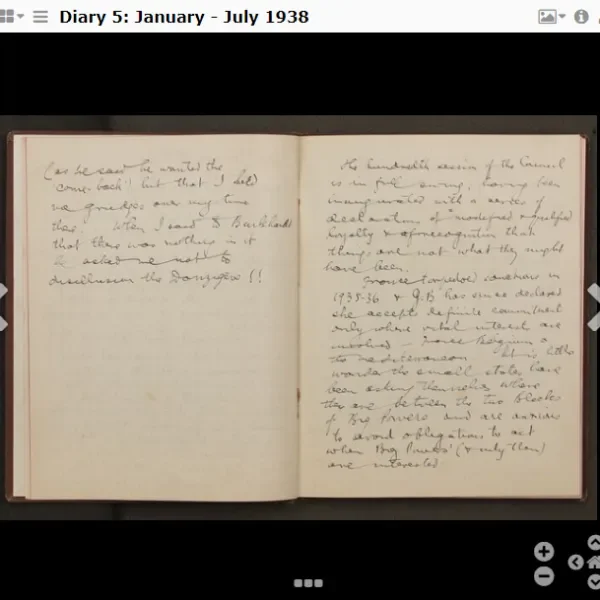 Diary 5: January - July 1938
(as he said he wanted the
'come back') but that I held
no grudges over my time
there. When I said to Burkhardt
that there was nothing in it
he asked me not to
disillusion the Danzigers !!
The hundredth session of the Council
is in full swing, having been
inaugurated with a series of
declarations of modified & qualified
loyalty & of recognition that
things are not what they might
have been.
France torpedoed in
1935-36 & G.B. has since declared
she accepts definite commitment
only where vital interests are
involved - France Belgium &
the Mediterranean. It is little
wonder the small states have
been asking themselves where
they are between the two Blocks
of Big Powers and are anxious
to avoid obligations to act
when Big Powers (& only then)
are interested